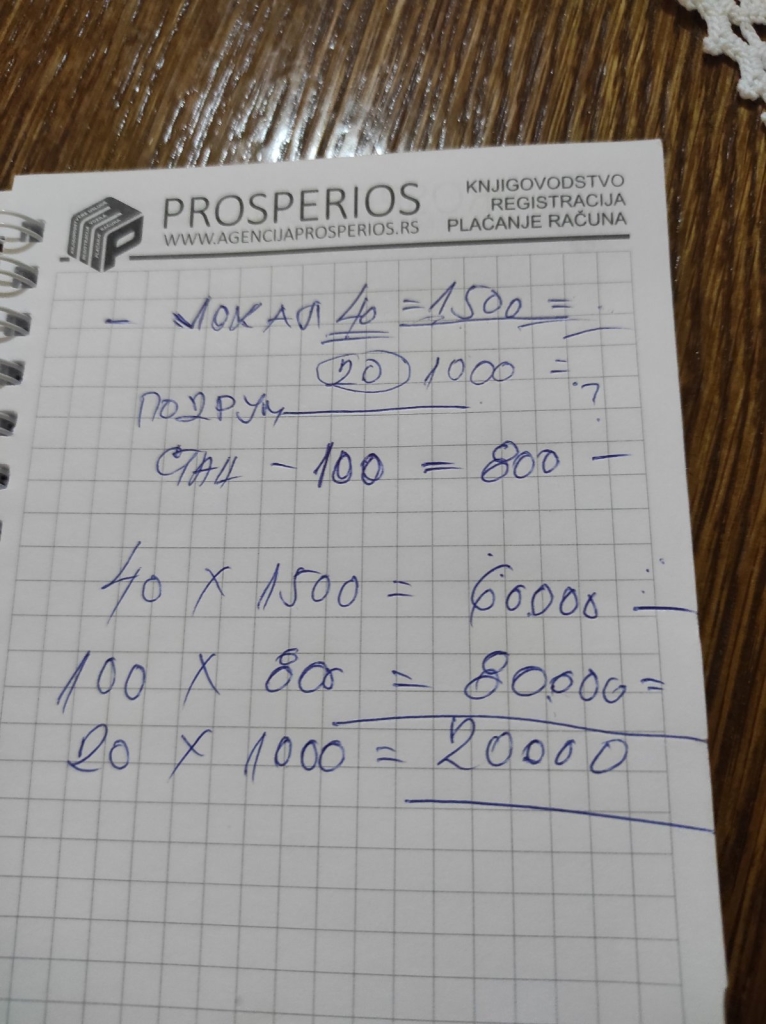 PROSPERIOS
WWW.AGENCIJAPROSPERIOS.RS
KNJIGOVODSTVO
REGISTRACIJA
PLAĆANJE RAČUNA
- ЛОКАЛ 40 = 1500 =
20 1000 = ?
ПОДРУМ
СТАН - 100 = 800 -
40 x 1500 = 60.000
100 x 800 = 80.000 =
20 x 1000 = 20000